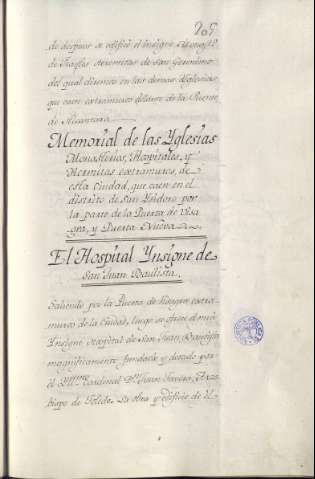 de despues se edificó el insigne Monast.º
de frayles Geronimos de San Geronimo
del qual diremos en las demas Yglesias
que caen extramuros delante de la Puente
de Alcantara
Memorial de las Yglesias
Monasterios, Hospitales, y
Hermitas extramuros, de
esta ciudad, que caen en el
distrito de San Ysidoro por
la parte de la Puerta de Visa
gra, y Puerta Nueva
El Hospital Ynsigne de
San Juan Bautista
Saliendo por la Puerta de Visagra extra
muros de la ciudad, luego se ofrece el mui
Ynsigne Hospital de San Juan Bautista
magnificamente fundado y dotado por
el Yll.mo Cardenal D.n Juan Tavera, Arzo
bispo de Toledo. La obra y edificio de el